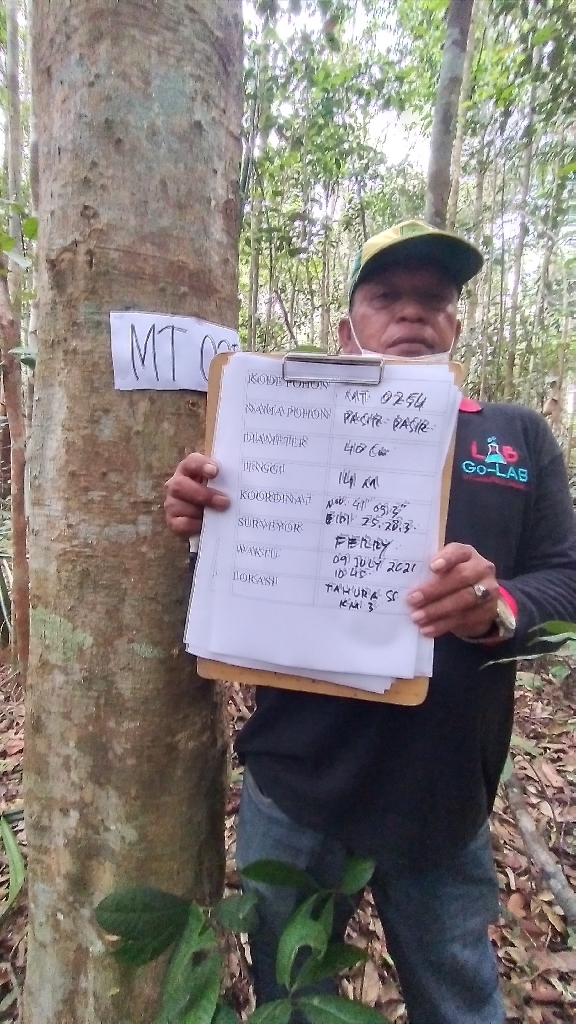 MT 00
KODE POHON MT 0254
NAMA POHON PASIR PASIR
DIAMETER 40 C
TINGGI 14 M
KOORDINAT
SURVEYOR FERRY
WAKTU 09 JULY 2021
10.45
LOKASI TAHURA SS
KM 3
LAB
Go-LAB